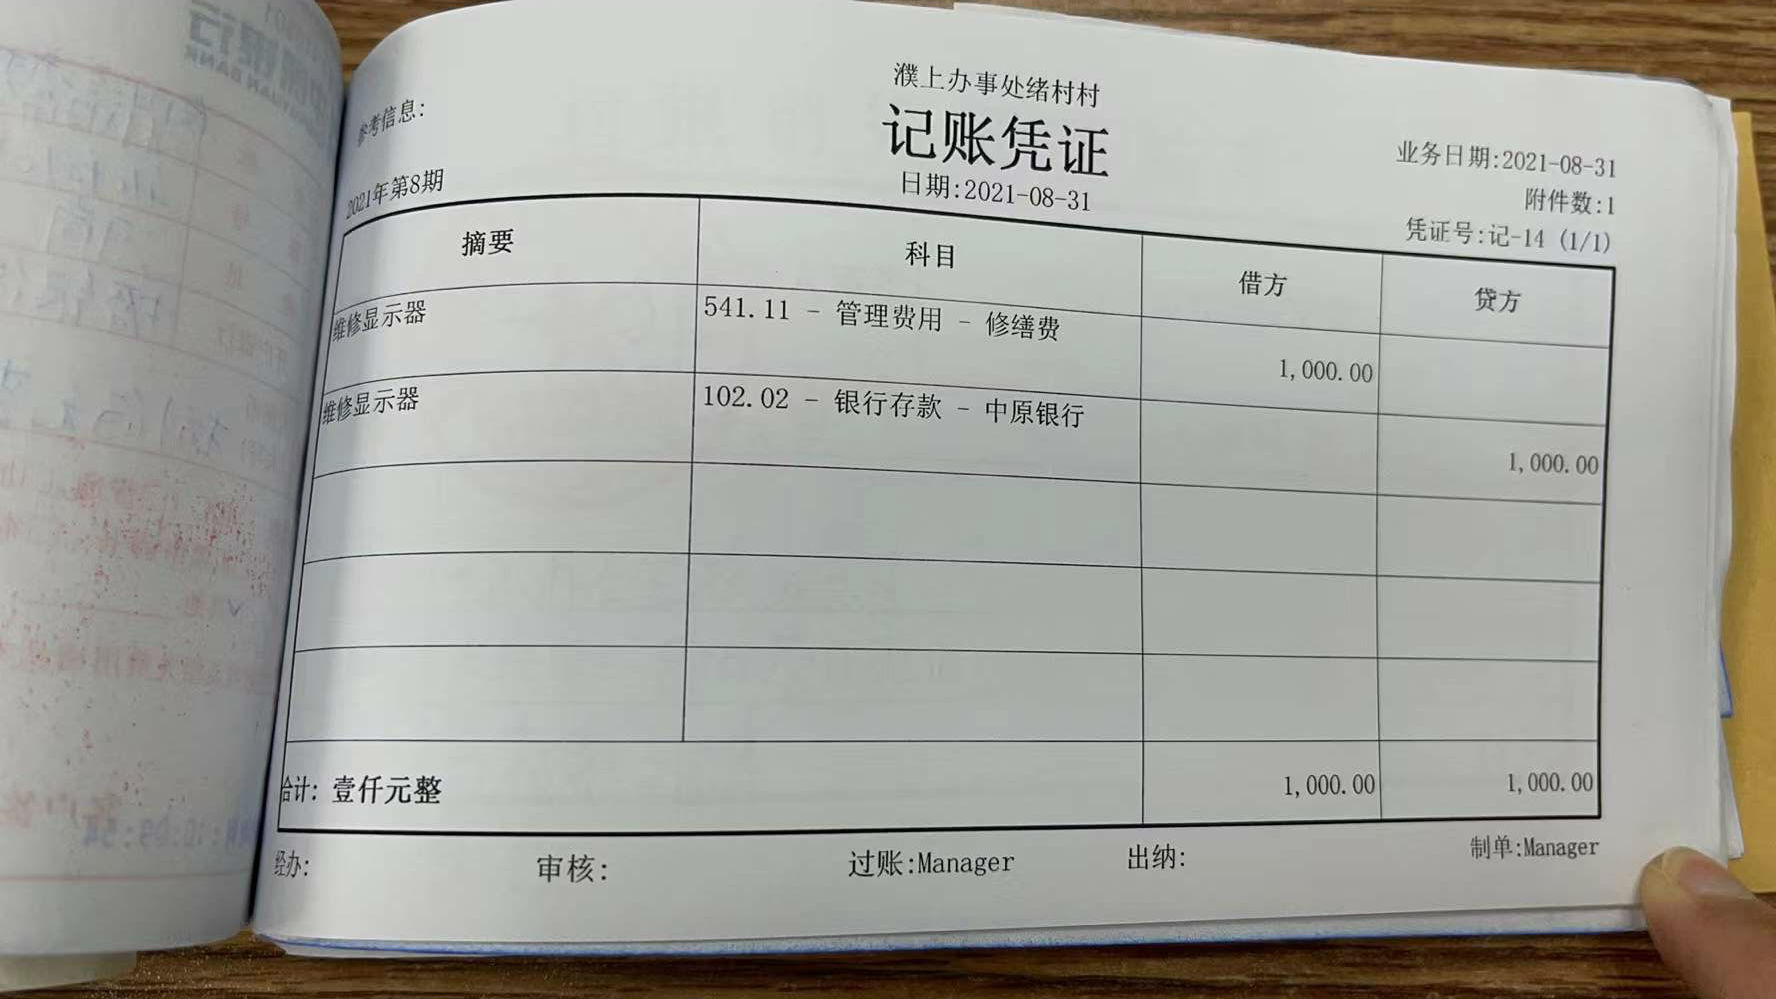 濮上办事处绪村村
参考信息:
记账凭证
业务日期:2021-08-31
2021年第8期
日期:2021-08-31
附件数:1
凭证号:记-14 (1/1)
摘要 科目 借方 贷方
维修显示器 541.11 - 管理费用 - 修缮费 1,000.00
维修显示器 102.02 - 银行存款 - 中原银行 1,000.00
合计: 壹仟元整 1,000.00 1,000.00
经办: 审核: 过账:Manager 出纳: 制单:Manager